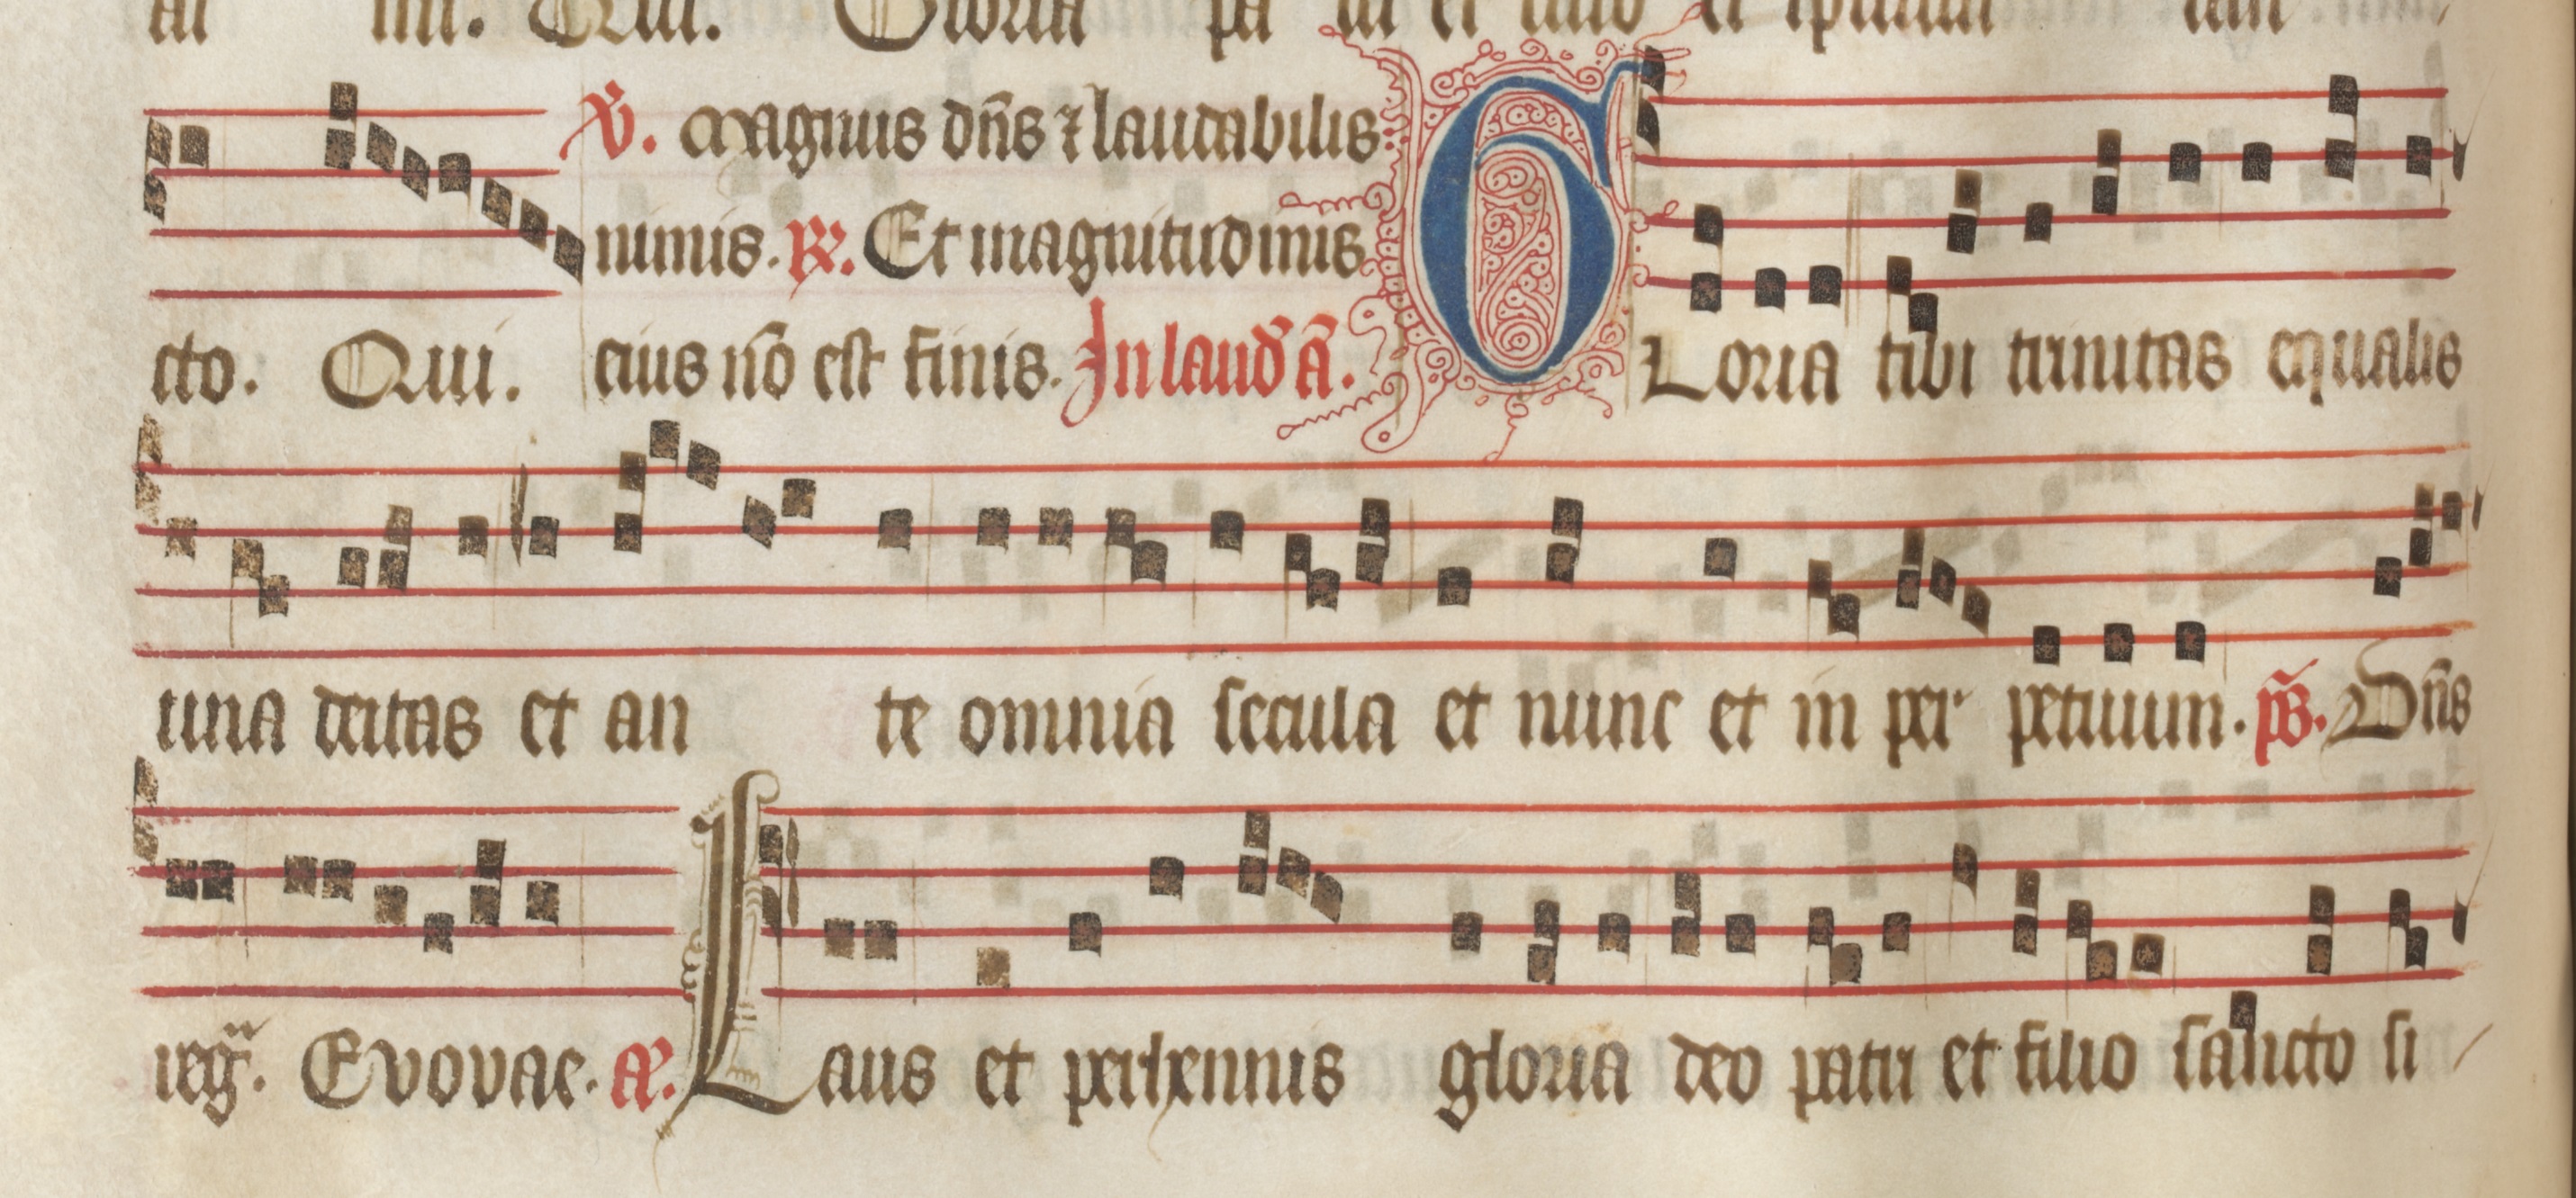 Qui. Gloria pa tri et filio et spiritui
V. Magnus dn̄s ⁊ laudabilis
nimis. R. Et magnitudinis
cto. Qui. eius nō est finis. In laud̄ ā. GLoria tibi trinitas equalis
una deitas et an te omnia secula et nunc et in per petuum. ps̄. Dn̄s
reg̃. Evovae. A. Laus et perhennis gloria deo patri et filio sancto si